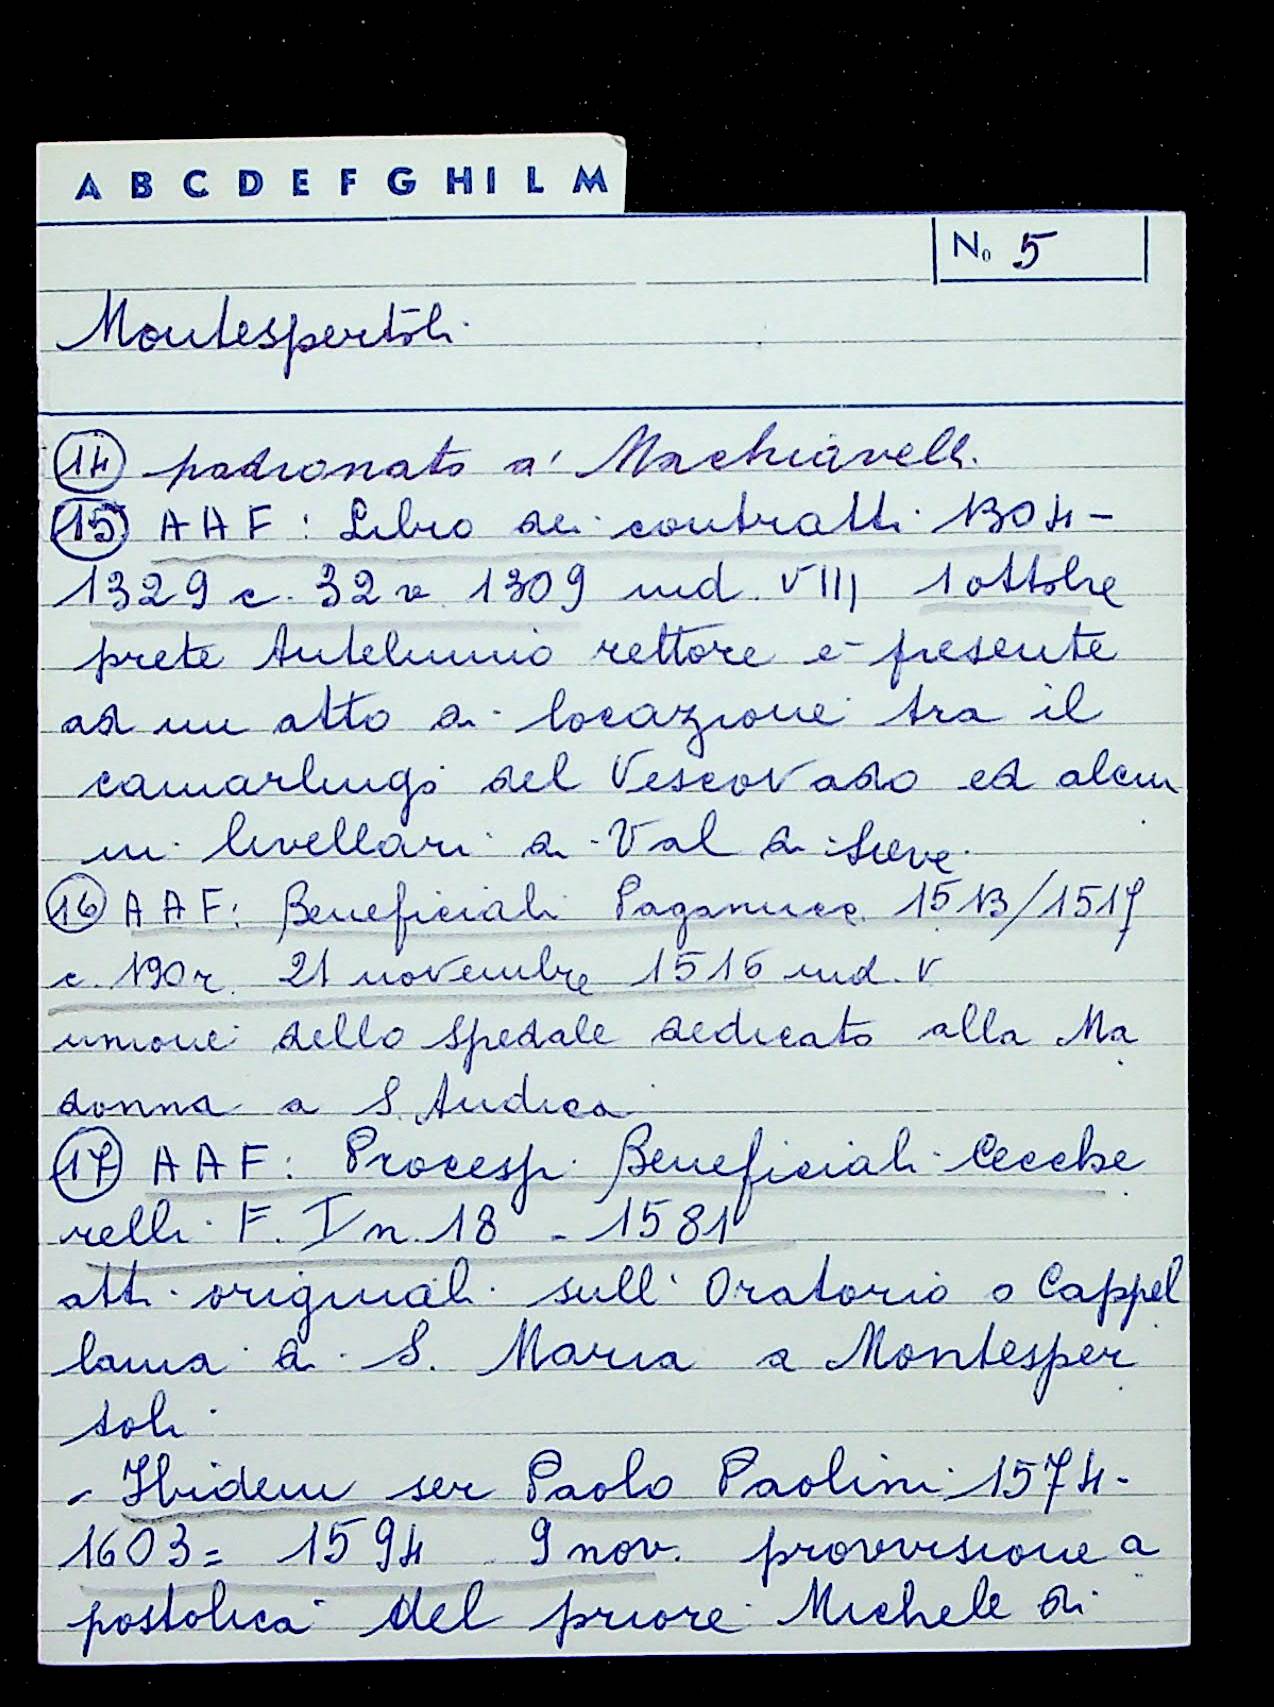 A B C D E F G H I L M
No 5
Montespertoli
14 padronato a' Machiavelli.
15 AAF: Libro dei contratti 1304-
1329 c. 32 v. 1309 ind. VIII 1 ottobre
prete Antelminio rettore è presente
ad un atto di locazione tra il
camarlingo del Vescovado ed alcu
ni livellari di Val di Sieve.
16 AAF: Beneficiali Paganucci 1513/1517
c. 190 r. 21 novembre 1516 ind. V
unione dello spedale dedicato alla Ma
donna a S. Andrea
17 AAF: Processi Beneficiali Cecche
relli F. I n. 18 - 1581
atti originali sull'Oratorio o Cappel
lania di S. Maria a Montesper
toli
- Ibidem ser Paolo Paolini 1574-
1603= 1594 9 nov. provvisione a
postolica del priore Michele di